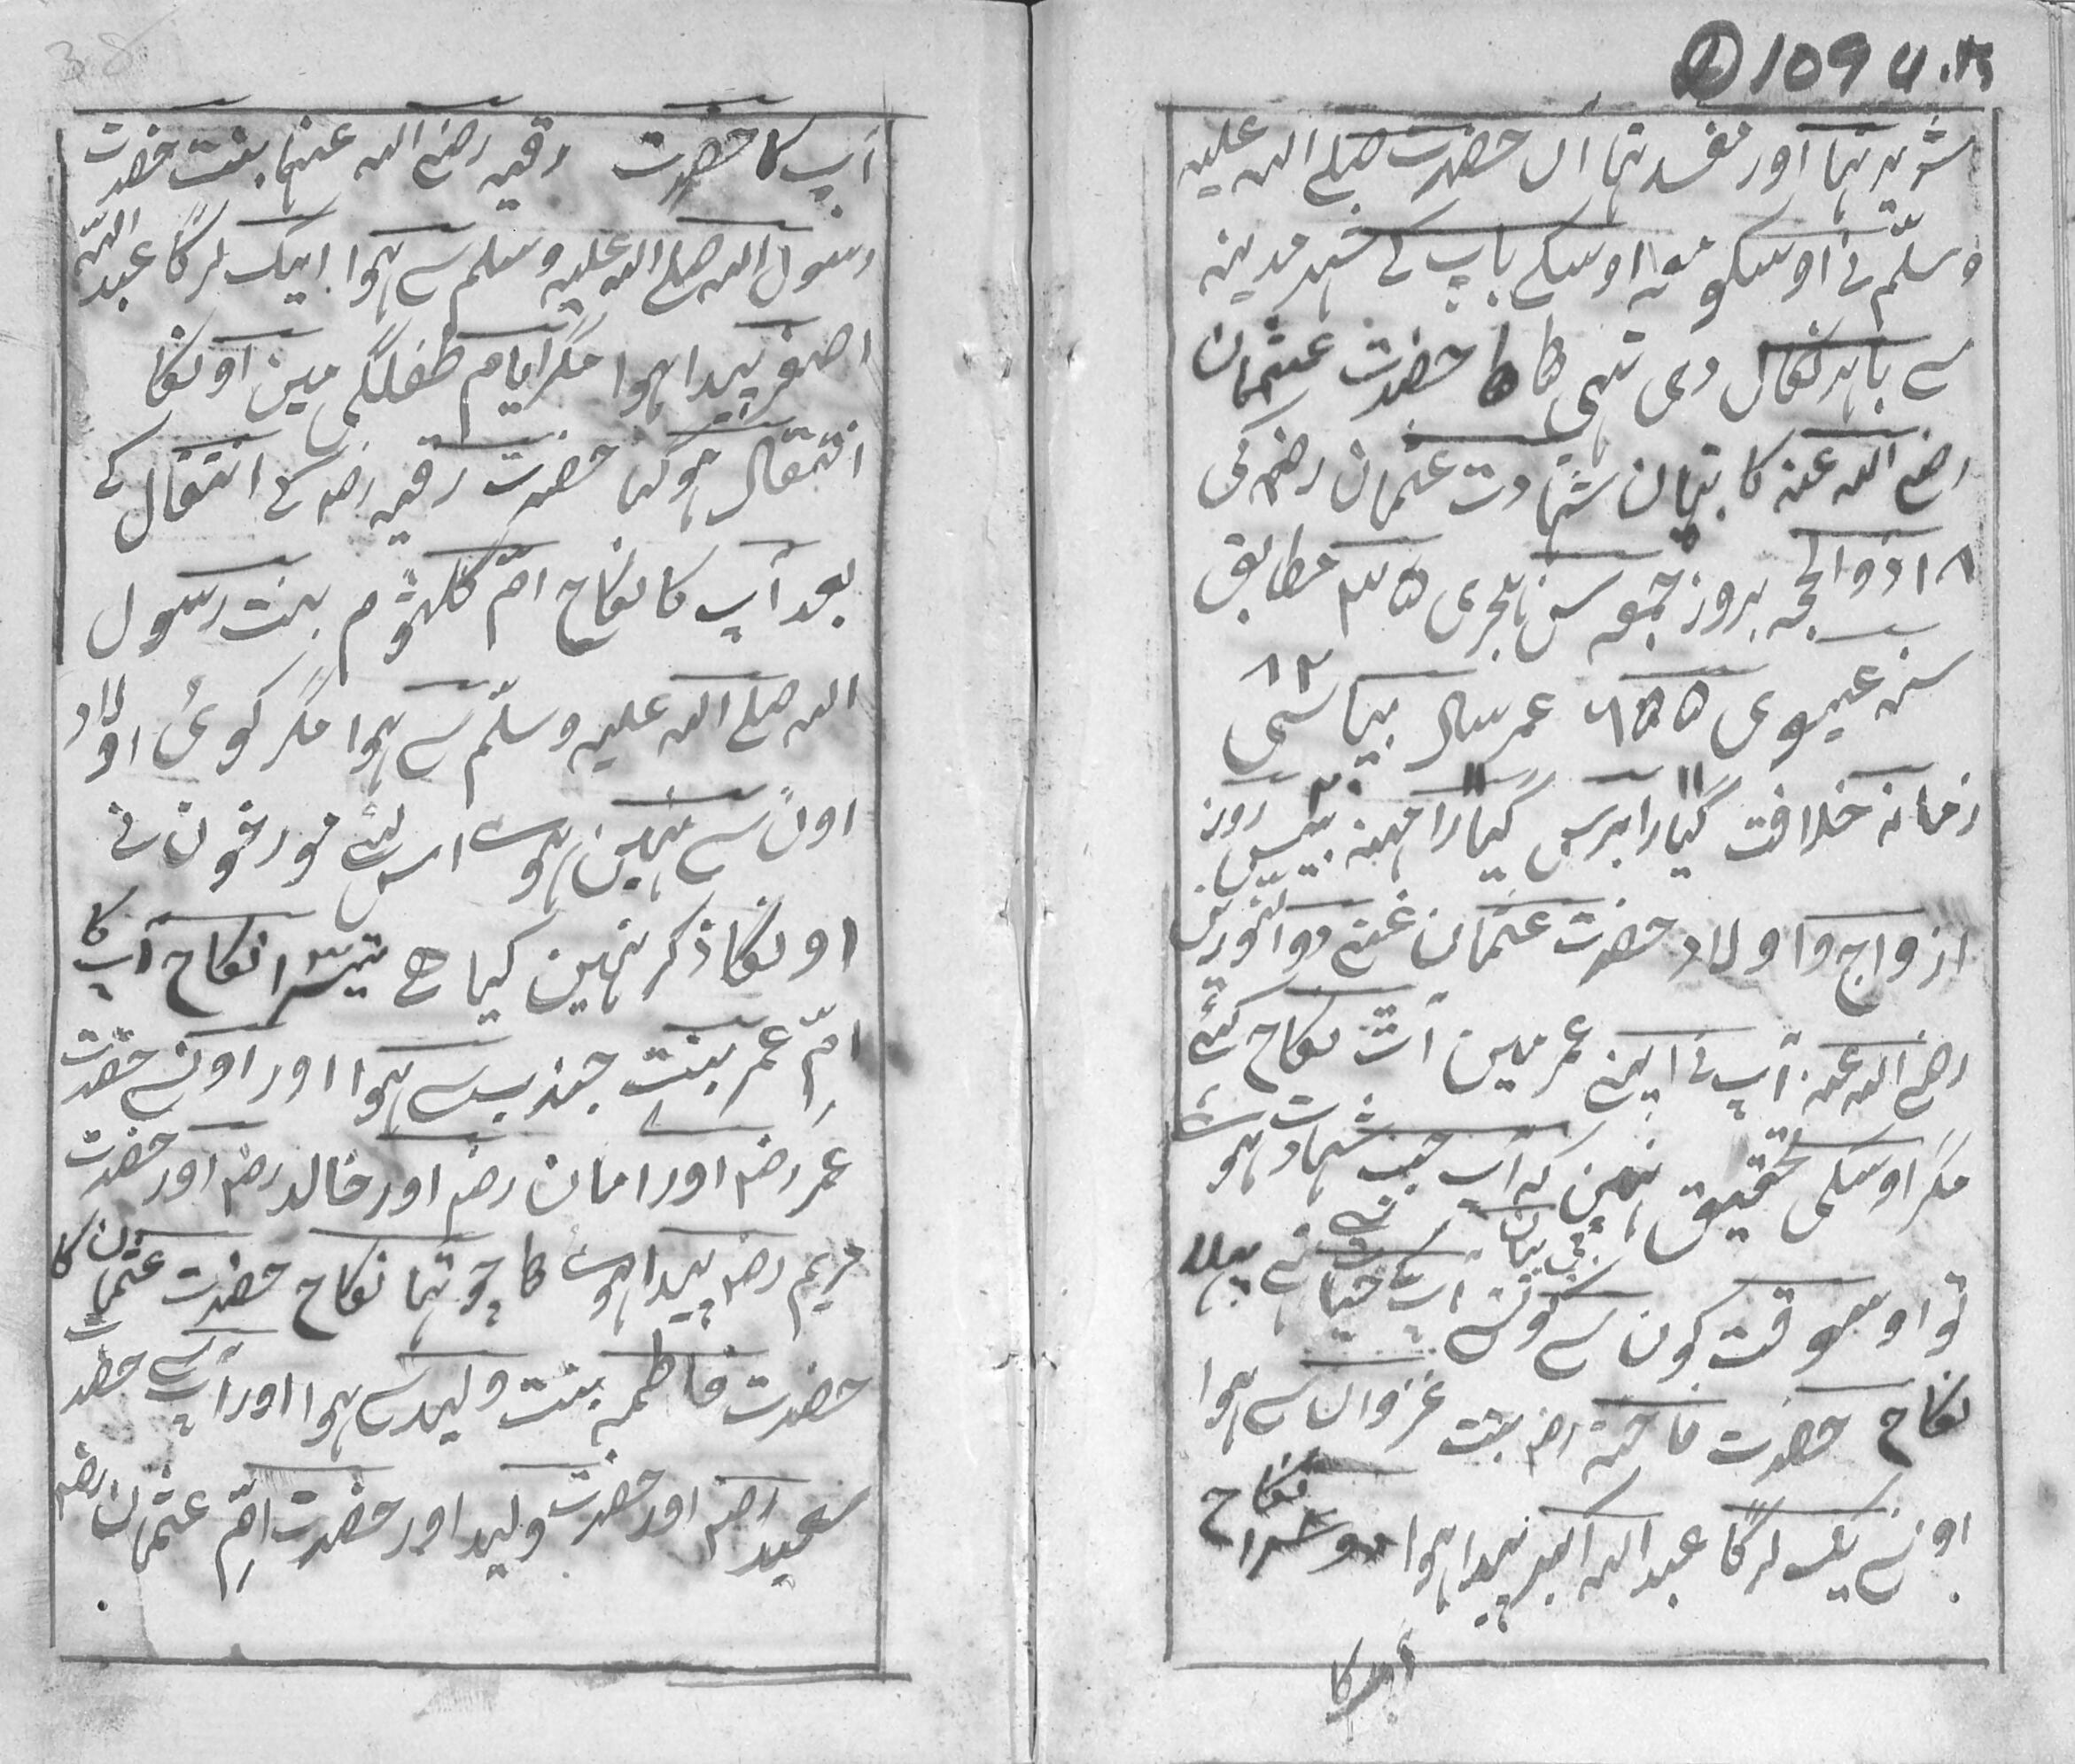 ② 109 U.M
شریر تہا اور مفسد تہا آں حضرت صلے اللہ علیہ
وسلّم نے اوسکو معہ اوسکے باپ کے شہر مدینہ
سے باہر نکال دی تہی حضرت عثمان
رضے اللہ عنہ کا بیان شہادت عثمان رضہ کی
۱۸ ذوالحجہ بروز جمعہ سن ہجری ۳۵ مطابق
سنہ عیسوی ۶۵۵ عمر سال بیاسی ۸۲
زمانہ خلافت گیارا ۱۱ برس گیارا ۱۱ مہینہ بیس ۲۰ روز
ازواج و اولاد حضرت عثمان غنے ذوالنورین
رضے اللہ عنہ آپ نے اپنے عمر میں آٹ نکاح کئے
مگر اوسکی تحقیق نہین کہ آپ جب شہادت ہوئے
تو اوسوقت کون سے کونسے بی بیان آپ کے حیات تہے پہلا
نکاح حضرت فاختہ رضہ بنت غزوان سے ہوا
اونسے یک لڑکا عبد اللہ اکبر پیدا ہوا دوسرا نکاح
آپ کا
38
آپ کا حضرت رقیہ رضے اللہ عنہا بنت حضرت
رسول اللہ صلے اللہ علیہ وسلم سے ہوا ایک لڑکا عبد اللہ
اصغر پیدا ہوا مگر ایام طفلگی مین اونکا
انتقال ہوگیا حضرت رقیہ رضہ کے انتقال کے
بعد آپ کا نکاح امّ کلثوم بنت رسول
اللہ صلے اللہ علیہ وسلّم سے ہوا مگر کوئی اولاد
اون سے نہین ہوئے اس لئے مورخون نے
اونکا ذکر نہین کیا ہے تیسرا نکاح آپ کا
امِّ عمر بنت جندب سے ہوا اور اونسے حضرت
عمر رضہ اور امان رضہ اور خالد رضہ اور حضرت
مریم رضہ پیدا ہوئے چوتہا نکاح حضرت عثمان کا
حضرت فاطمہ بنت ولید سے ہوا اور آپ سے حضرت
سعید رضہ اور حضرت ولید اور حضرت امِّ عثمان رضہ